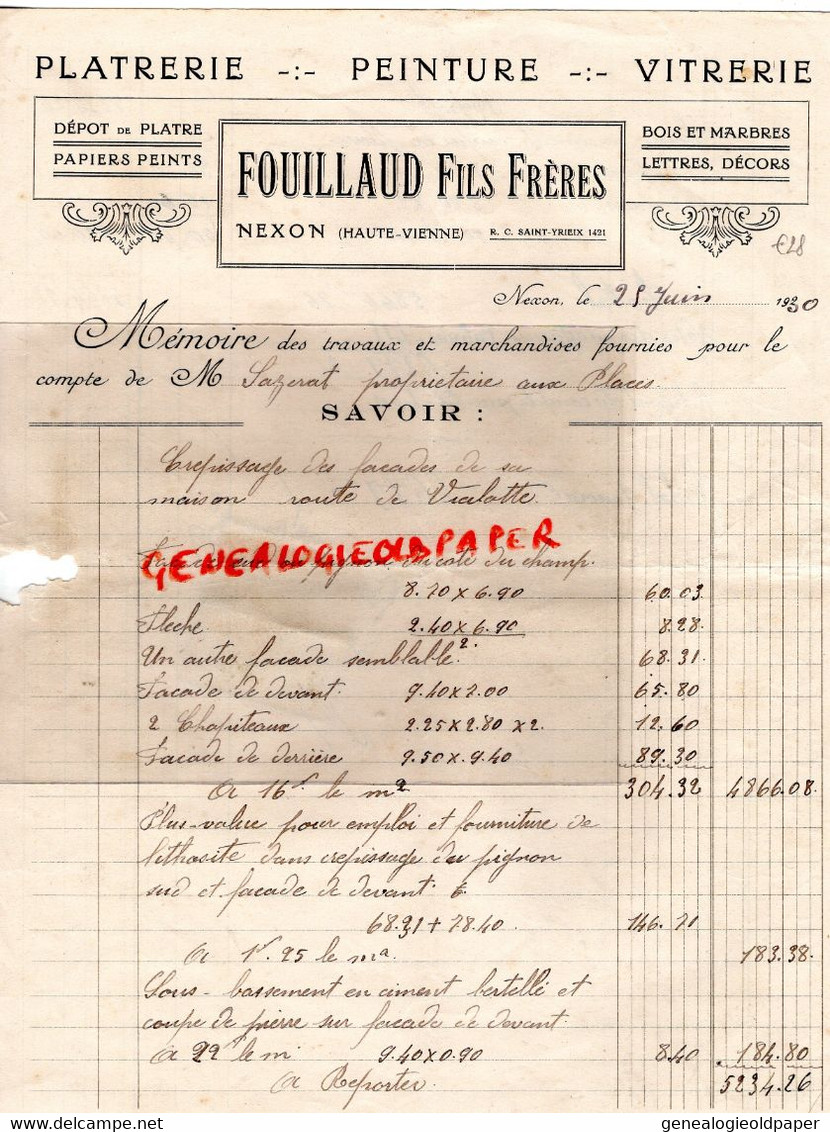 PLATRERIE -:- PEINTURE -:- VITRERIE
DÉPOT DE PLATRE
PAPIERS PEINTS
FOUILLAUD FILS FRÈRES
NEXON (HAUTE-VIENNE) R. C. SAINT-YRIEIX 1421
BOIS ET MARBRES
LETTRES, DÉCORS
€28
Nexon, le 25 Juin 1930
Mémoire des travaux et marchandises fournies pour le
compte de M Sazerat propriétaire aux Places
SAVOIR :
Crepissage des facades de sa
maison route de Vialotte.
GENEALOGIEOLDPAPER
Facade sud ou pignon du coté du champ.
8.70 x 6.90 60.03
Fleche 2.40 x 6.90 8.28
Un autre facade semblable 68.31
Facade de devant 9.40 x 7.00 65.80
2 Chapiteaux 2.25 x 2.80 x 2. 12.60
Facade de derrière 9.50 x 9.40 89.30
A 16f le m2 304.32 4866.08
Plus-value pour emploi et fourniture de
lithosite dans crepissage du pignon
sud et facade de devant
68.31 + 78.40 146.71
A 1f.25 le m2 183.38
Sous-bassement en ciment bertellé et
coupe de pierre sur facade de devant
a 22 le m 9.40 x 0.90 8.40 184.80
A Reporter 5234.26
genealogieoldpaper